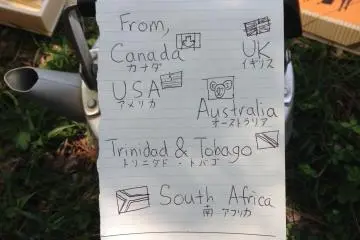 From,
Canada
カナダ
UK
イギリス
USA
アメリカ
Australia
オーストラリア
Trinidad & Tobago
トリニダド・トバゴ
South Africa
南アフリカ